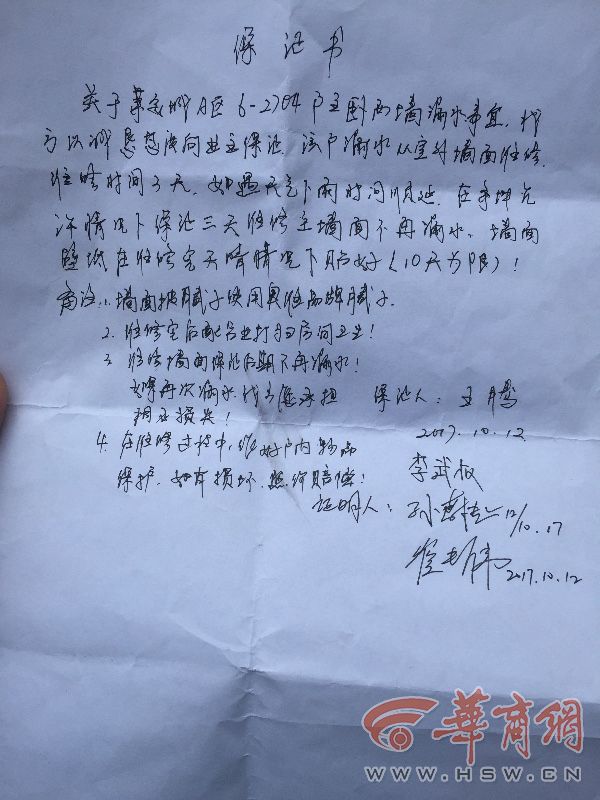 保证书
关于莱安城A区6-2704户主卧西墙漏水事宜,我
方以诚恳态度向业主保证,该户漏水从室外墙面维修,
维修时间3天,如遇天气下雨时间顺延,在条件允
许情况下保证三天维修至墙面不再漏水,墙面
壁纸在维修完天晴情况下贴好(10天为限)!
备注:1.墙面批腻子使用奥维品牌腻子.
2.维修完后配合业主打扫房间卫生!
3.维修墙面保证后期不再漏水!
如果再次漏水,我方愿承担
损失!
保证人:王鹏
2017.10.12
4.在维修过程中,做好户内物品
保护,如有损坏,照价赔偿!
李武权
证明人:孙 12/10.17
崔 伟 2017.10.12
華商網
WWW.HSW.CN